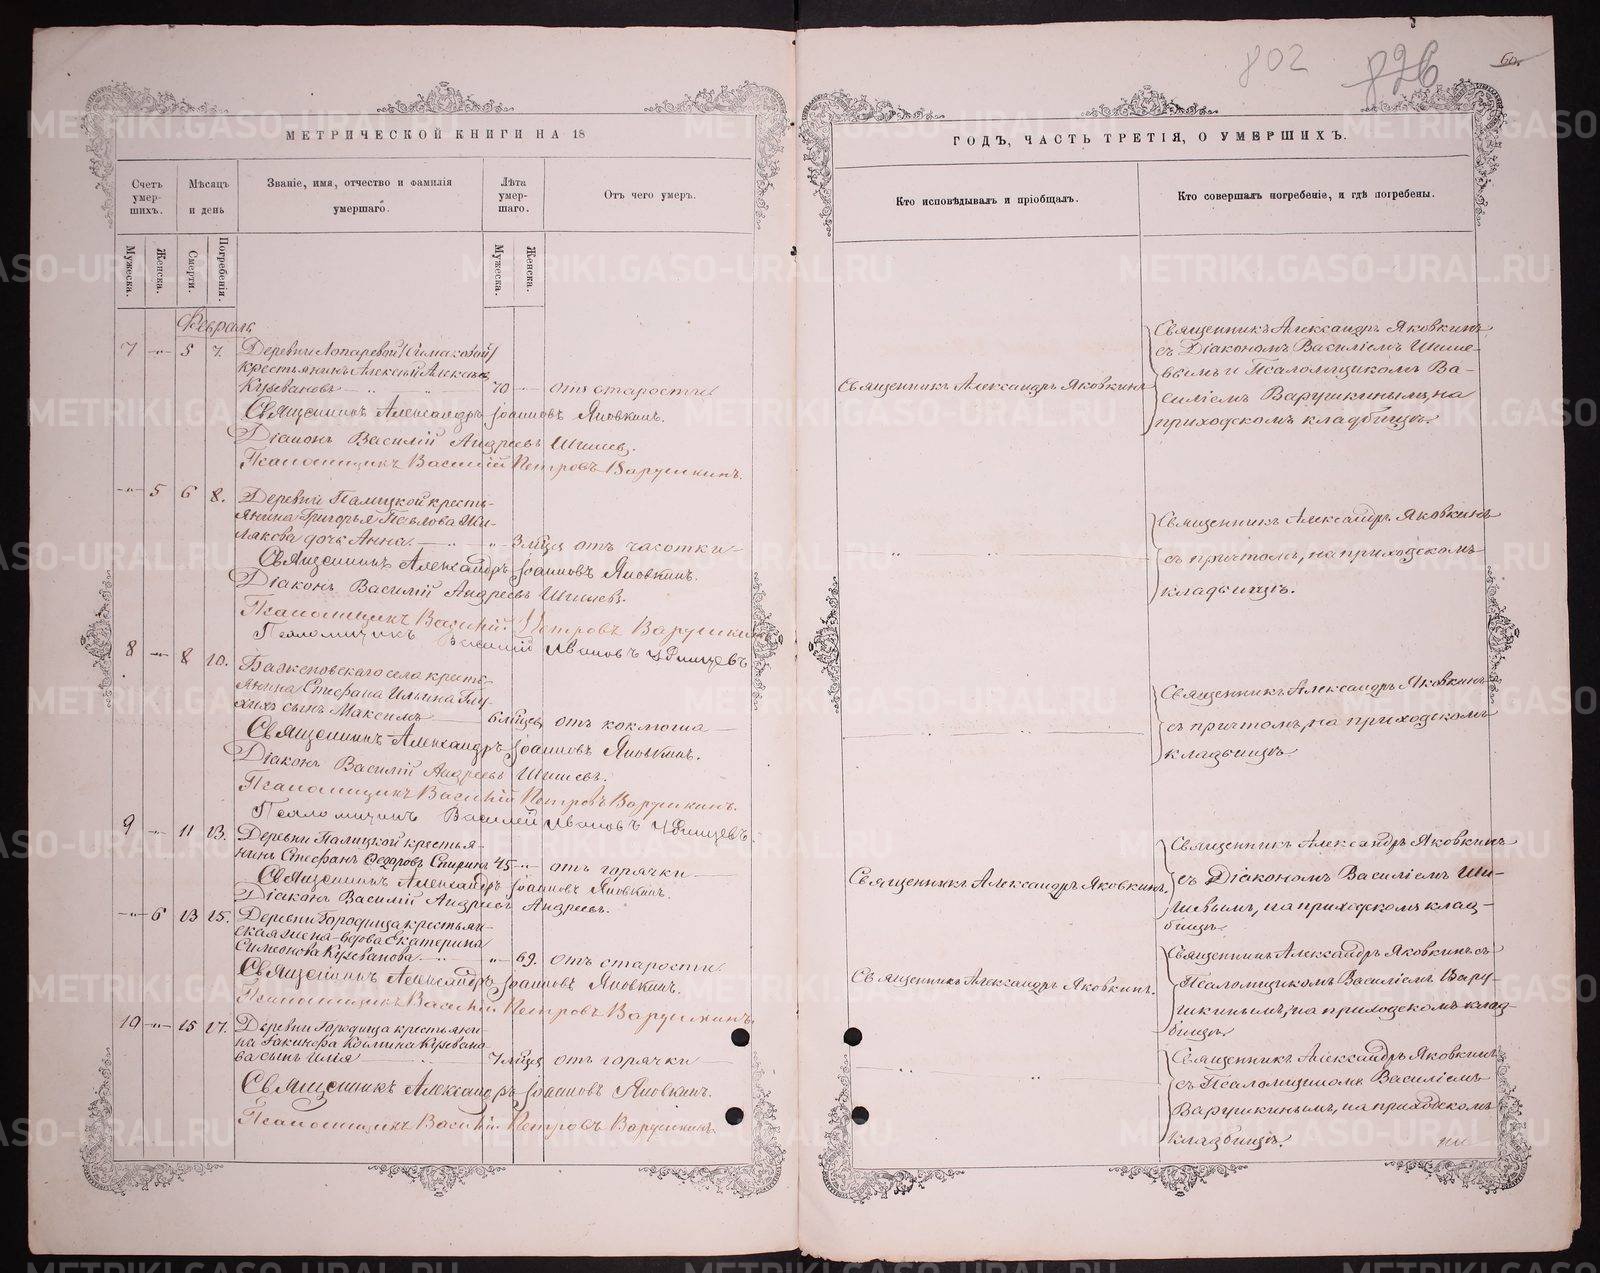 802 826 60.
МЕТРИЧЕСКОЙ КНИГИ НА 18
ГОДЪ, ЧАСТЬ ТРЕТІЯ, О УМЕРШИХЪ.
Счетъ умершихъ.
Мѣсяцъ и день
Званіе, имя, отчество и фамилія умершаго.
Лѣта умершаго.
Отъ чего умеръ.
Кто исповѣдывалъ и пріобщалъ.
Кто совершалъ погребеніе, и гдѣ погребены.
Мужеска.
Женска.
Смерти.
Погребенія.
Мужеска.
Женска.
Февраль
7 -"- 5 7. Деревни Лопаревой
крестьянинъ Алексѣй Алексѣевъ
Кузевановъ 70 -"- отъ старости
Священникъ Александръ Іоанновъ Яковкинъ.
Діаконъ Василій Андреевъ Шишевъ.
Псаломщикъ Василій Петровъ Варушкинъ.
Священникъ Александръ Яковкинъ
Священникъ Александръ Яковкинъ
съ Діакономъ Василіемъ Шише-
вымъ и Псаломщикомъ Ва-
силіемъ Варушкинымъ, на
приходскомъ кладбищѣ.
-"- 5 6 8. Деревни Палицкой кресть-
янина Григорья Павлова
дочь Анна. -"- 3 м-ца отъ чахотки
Священникъ Александръ Іоанновъ Яковкинъ.
Діаконъ Василій Андреевъ Шишевъ.
Псаломщикъ Василій Петровъ Варушкинъ
Псаломщикъ Василій Ивановъ
Священникъ Александръ Яковкинъ
съ причтомъ, на приходскомъ
кладбищѣ.
8 -"- 8 10. Баженовскаго села кресть-
янина Стефана Ильина
сынъ Максимъ 6 м-цевъ отъ коклюша
Священникъ Александръ Іоанновъ Яковкинъ.
Діаконъ Василій Андреевъ Шишевъ.
Псаломщикъ Василій Петровъ Варушкинъ.
Псаломщикъ Василій Ивановъ
Священникъ Александръ Яковкинъ
съ причтомъ, на приходскомъ
кладбищѣ.
9 -"- 11 13. Деревни Палицкой крестья-
нинъ Стефанъ Федоровъ Спиринъ 45 -"- отъ горячки
Священникъ Александръ Іоанновъ Яковкинъ.
Діаконъ Василій Андреевъ Андреевъ.
Священникъ Александръ Яковкинъ.
Священникъ Александръ Яковкинъ
съ Діакономъ Василіемъ Ши-
шевымъ, на приходскомъ клад-
бищѣ.
-"- 6 13 15. Деревни Городища крестьян-
ская жена-вдова Екатерина
Симеонова Кузеванова -"- 69. отъ старости
Священникъ Александръ Іоанновъ Яковкинъ.
Псаломщикъ Василій Петровъ Варушкинъ.
Священникъ Александръ Яковкинъ.
Священникъ Александръ Яковкинъ съ
Псаломщикомъ Василіемъ Вару-
шкинымъ, на приходскомъ клад-
бищѣ.
10 -"- 15 17. Деревни Городища крестьяни-
на Іакинфа Козмина Кузевано-
ва сынъ Илія 7 м-цевъ отъ горячки
Священникъ Александръ Іоанновъ Яковкинъ.
Псаломщикъ Василій Петровъ Варушкинъ.
Священникъ Александръ Яковкинъ
съ Псаломщикомъ Василіемъ
Варушкинымъ, на приходскомъ
кладбищѣ.
METRIKI.GASO-URAL.RU